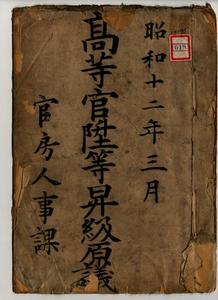 昭和十二年三月
高等官陞等昇級原議
官房人事課